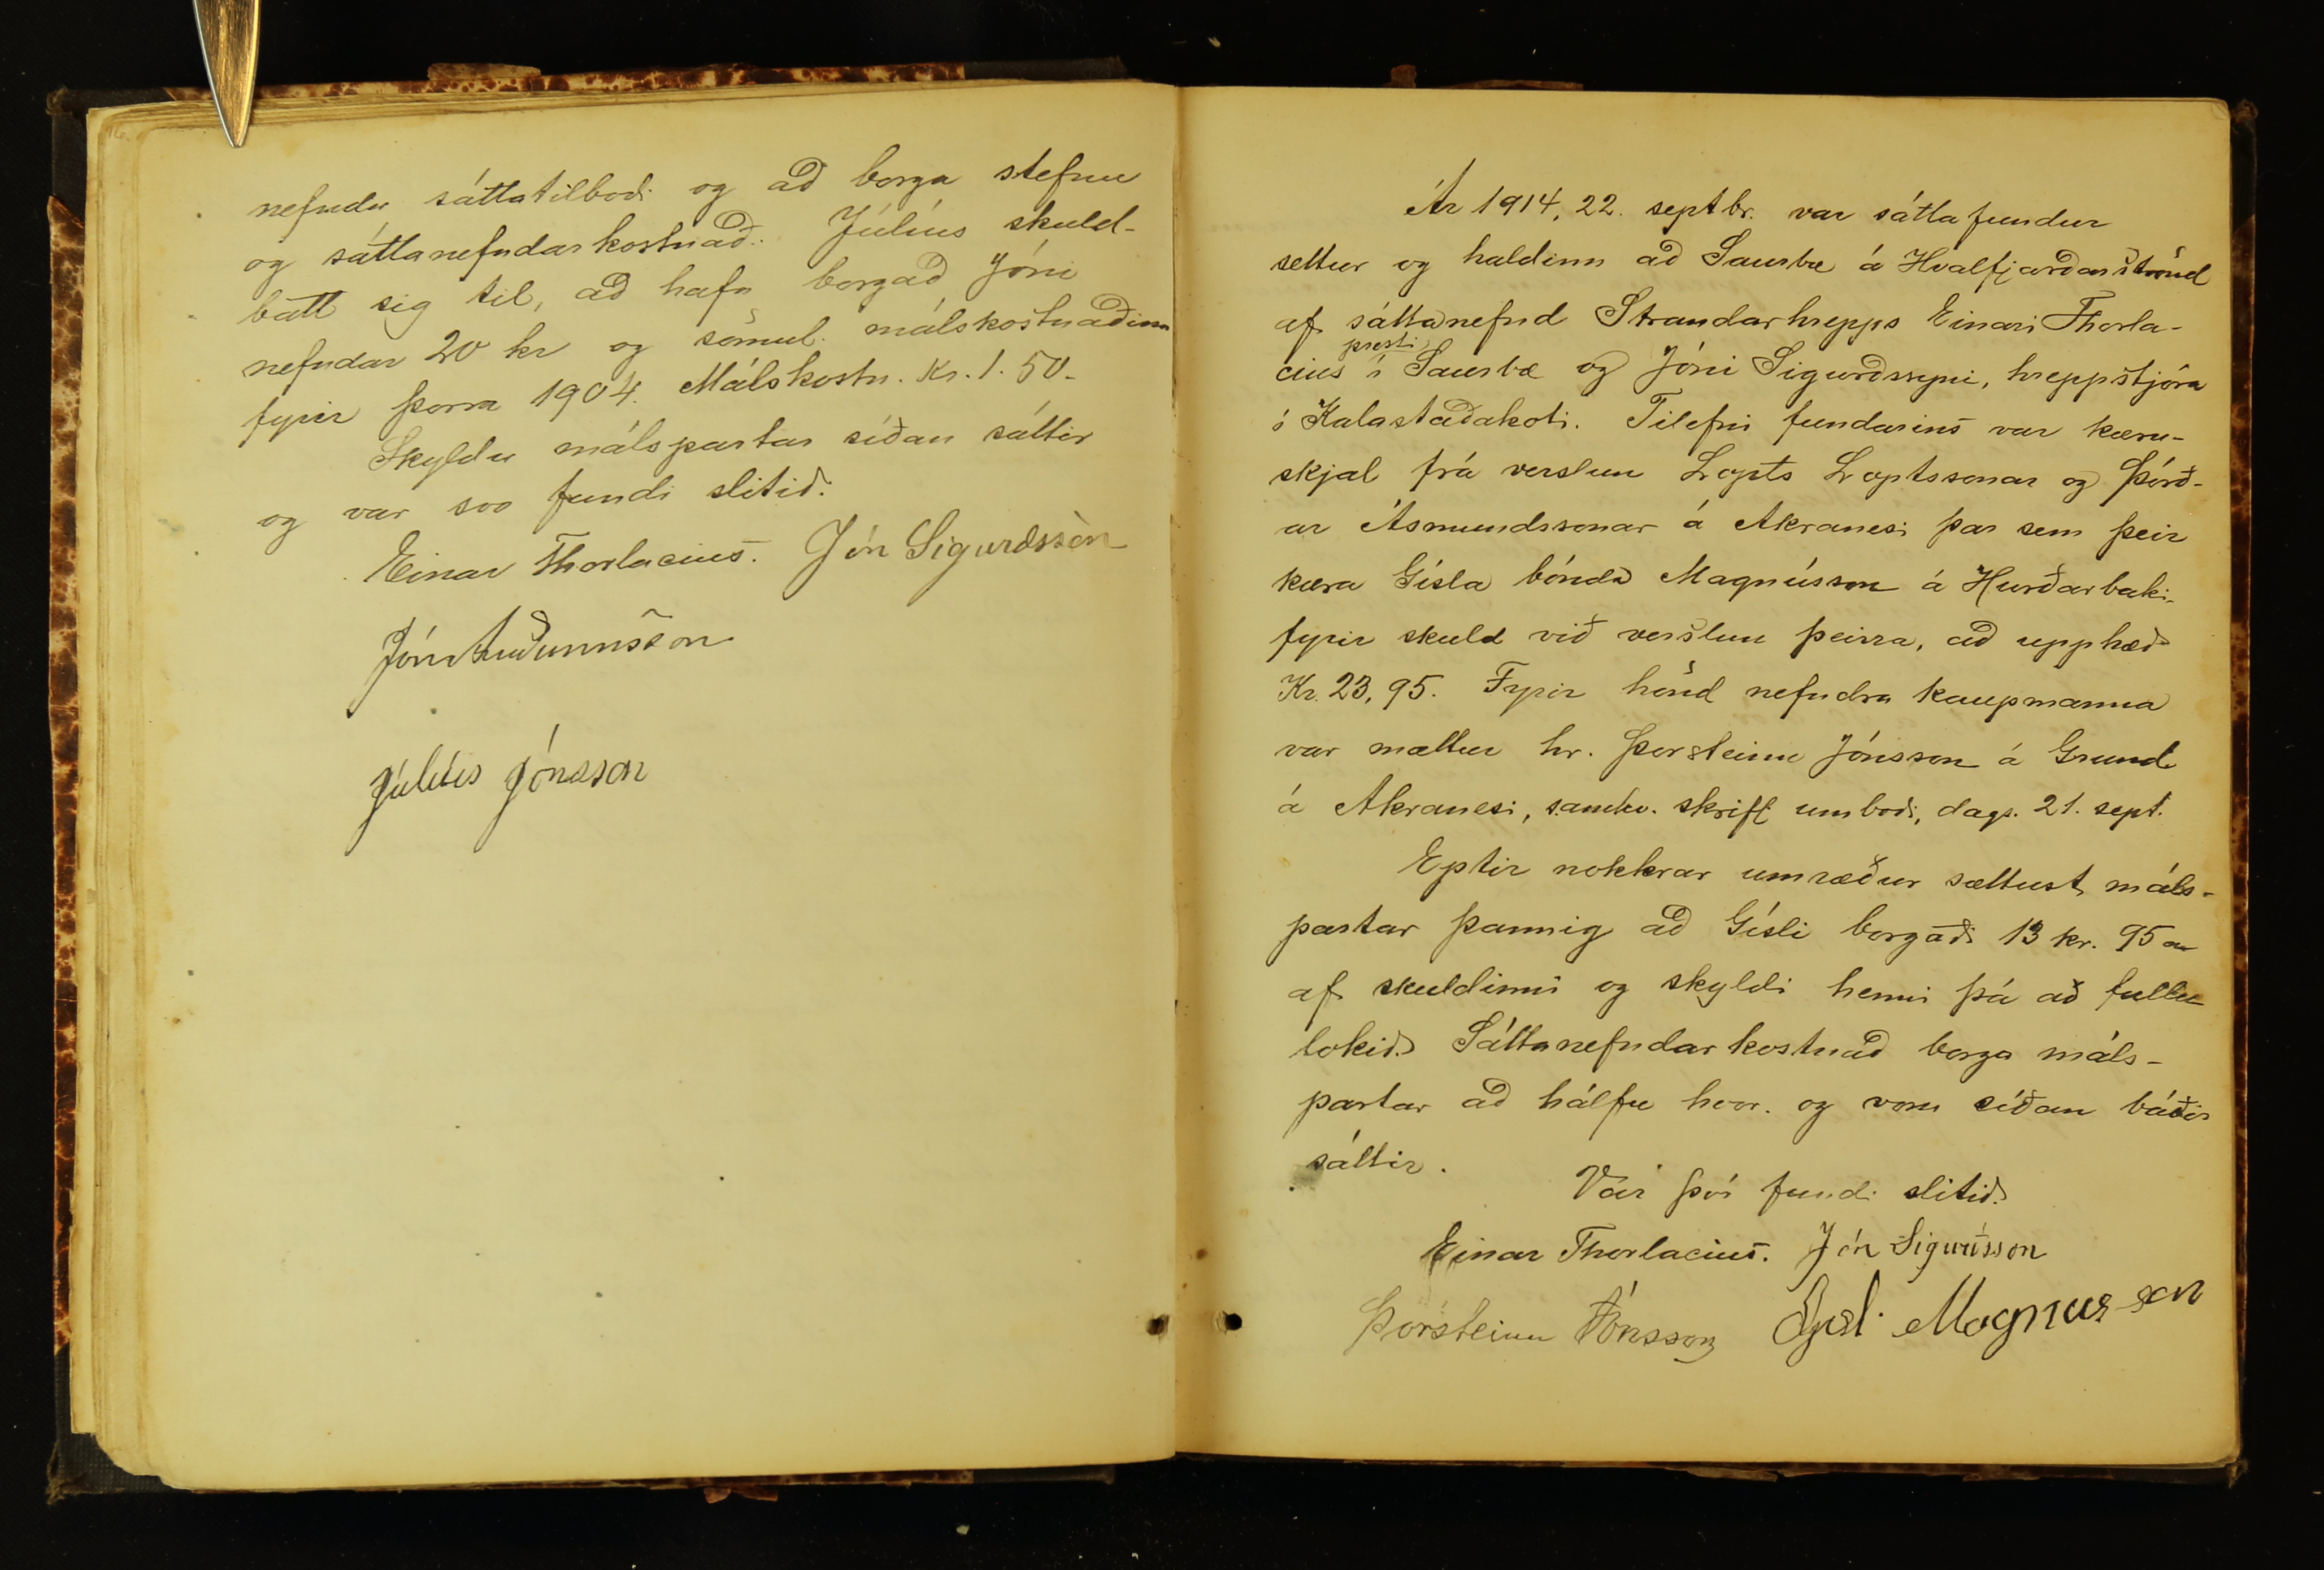 16.
nefndu sáttatilboði og að borga stefnu
og sáttanefndarkostnað. Július skuld-
batt sig til, að hafa borgað Jóni
nefndar 20 kr og sömul. málskostnaðinn
fyrir þorra 1904. Málskostn. Kr. 1.50-
Skyldu málspartar síðan sáttir
og var svo fundi slitið.
Einar Thorlacius. Jón Sigurðsson
Jón Auðunnsson
Július Jónsson
Ár 1914, 22. septbr. var sáttafundur
settur og haldinn að Saurbæ á Hvalfjarðarströnd
af sáttanefnd Strandarhrepps Einari Thorla-
presti
cius í Saurbæ og Jóni Sigurðssyni, hreppstjóra
í Kalastaðakoti. Tilefni fundarins var kæru-
skjal frá verslun Lopts Loptssonar og Þórð-
ar Ásmundssonar á Akranesi þar sem þeir
kæra Gísla bónda Magnússon á Hurðarbaki
fyrir skuld við verslun þeirra, að upphæð
Kr. 23,95. Fyrir hönd nefndra kaupmanna
var mættur hr. Þorsteinn Jónsson á Grund
á Akranesi, samkv. skrifl umboði, dags. 21. sept.
Eptir nokkrar umræður sættust máls-
partar þannig að Gísli borgaði 13 kr. 95 a
af skuldinni og skyldi henni þá að fullu
lokið. Sáttanefndarkostnað borga máls-
partar að hálfu hvor. og voru síðan báðir
sáttir.
Var því fundi slitið.
Einar Thorlacius. Jón Sigurðsson
Þorsteinn Jónsson Gísli Magnusson